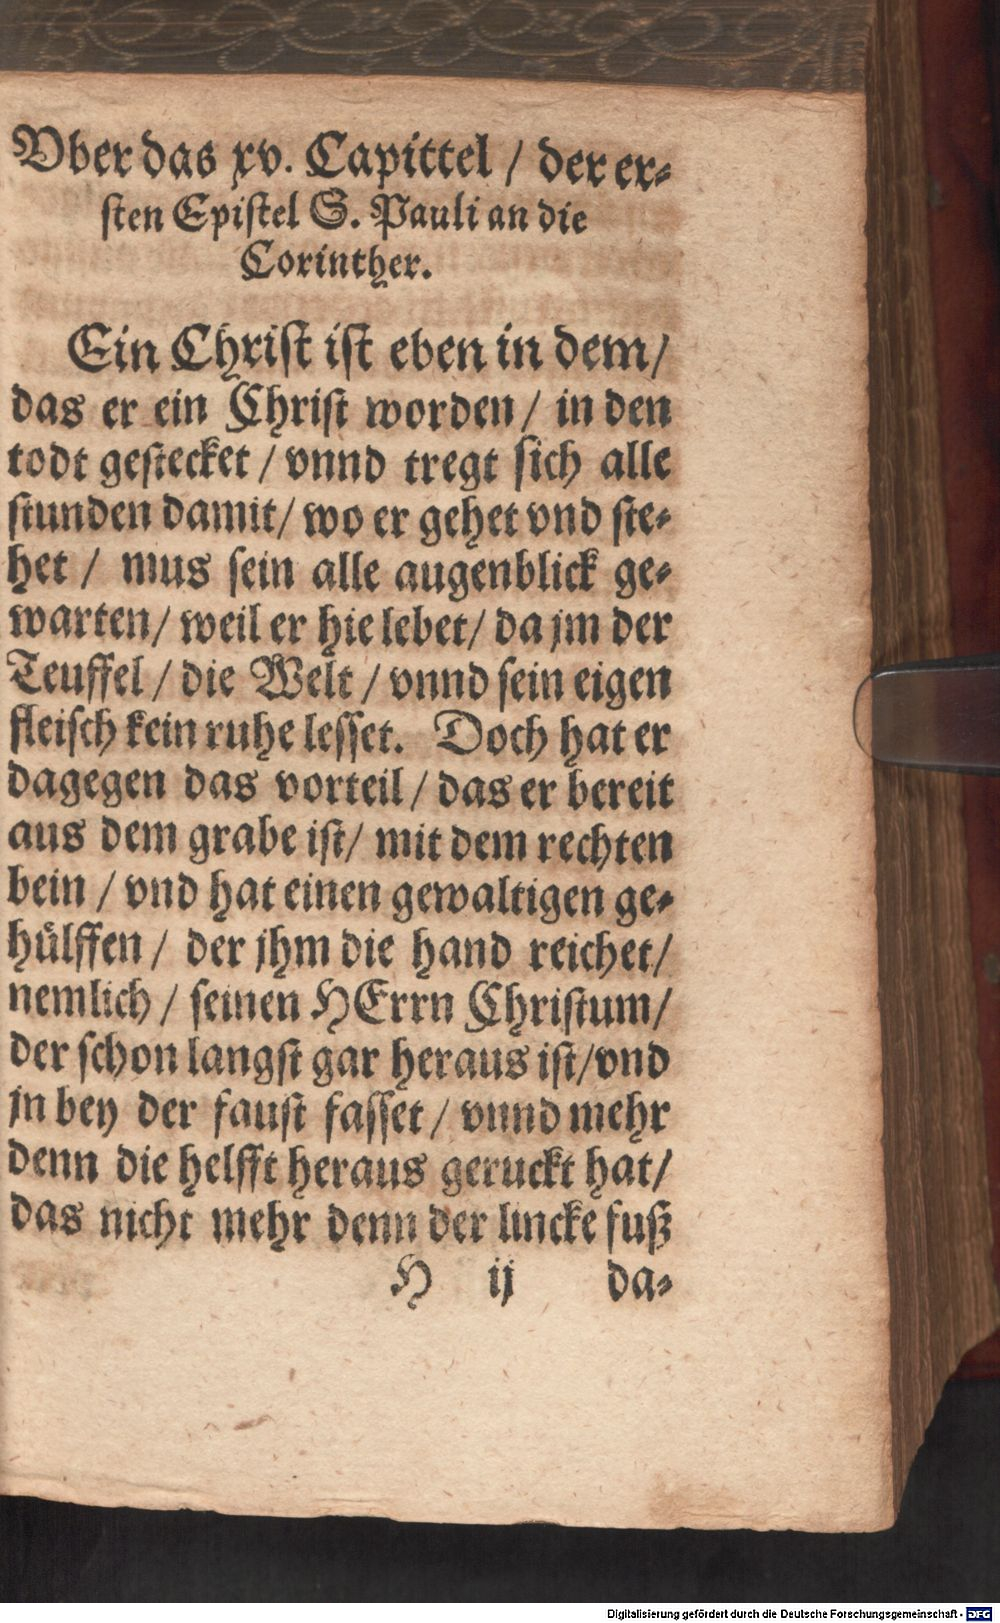 Vber das xv. Capittel / der er-
sten Epistel S. Pauli an die
Corinther.
Ein Christ ist eben in dem /
das er ein Christ worden / in den
todt gestecket / vnnd tregt sich alle
stunden damit / wo er gehet vnd ste-
het / mus sein alle augenblick ge-
warten / weil er hie lebet / da jm der
Teuffel / die Welt / vnnd sein eigen
fleisch kein ruhe lesset. Doch hat er
dagegen das vorteil / das er bereit
aus dem grabe ist / mit dem rechten
bein / vnd hat einen gewaltigen ge-
hülffen / der jhm die hand reichet /
nemlich / seinen HErrn Christum /
der schon langst gar heraus ist / vnd
jn bey der faust fasset / vnnd mehr
denn die helfft heraus geruckt hat /
das nicht mehr denn der lincke fuß
H ij da-
Digitalisierung gefördert durch die Deutsche Forschungsgemeinschaft - DFG